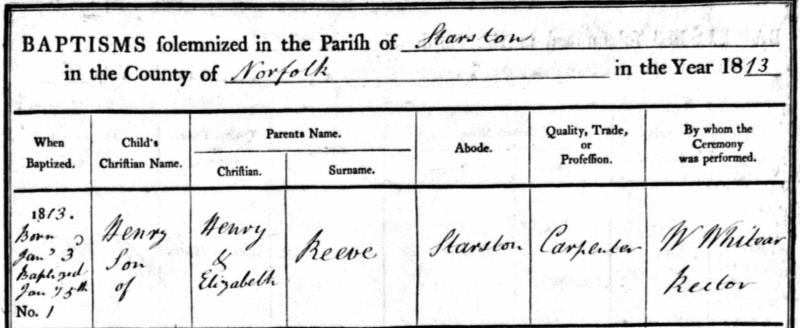 BAPTISMS solemnized in the Parish of Starston
in the County of Norfolk in the Year 1813
When Baptized. Child's Christian Name. Parents Name. Abode. Quality, Trade, or Profession. By whom the Ceremony was performed.
Christian. Surname.
1813.
Born
Jany 3d
Baptized
Jany 5th
No. 1
Henry
Son
of
Henry
&
Elizabeth
Reeve
Starston
Carpenter
W Whitear
Rector